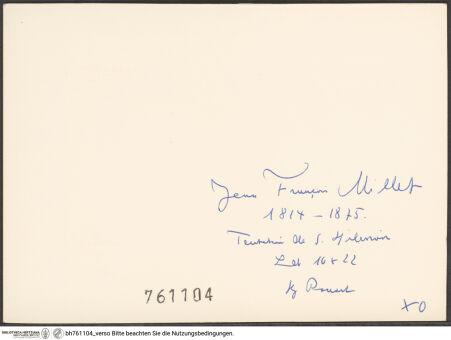 Jean François Millet
1814 – 1875.
Tentation de S. Hilarion
16 x 22
761104
XO
BIBLIOTHECA HERTZIANA
bh761104_verso Bitte beachten Sie die Nutzungsbedingungen.